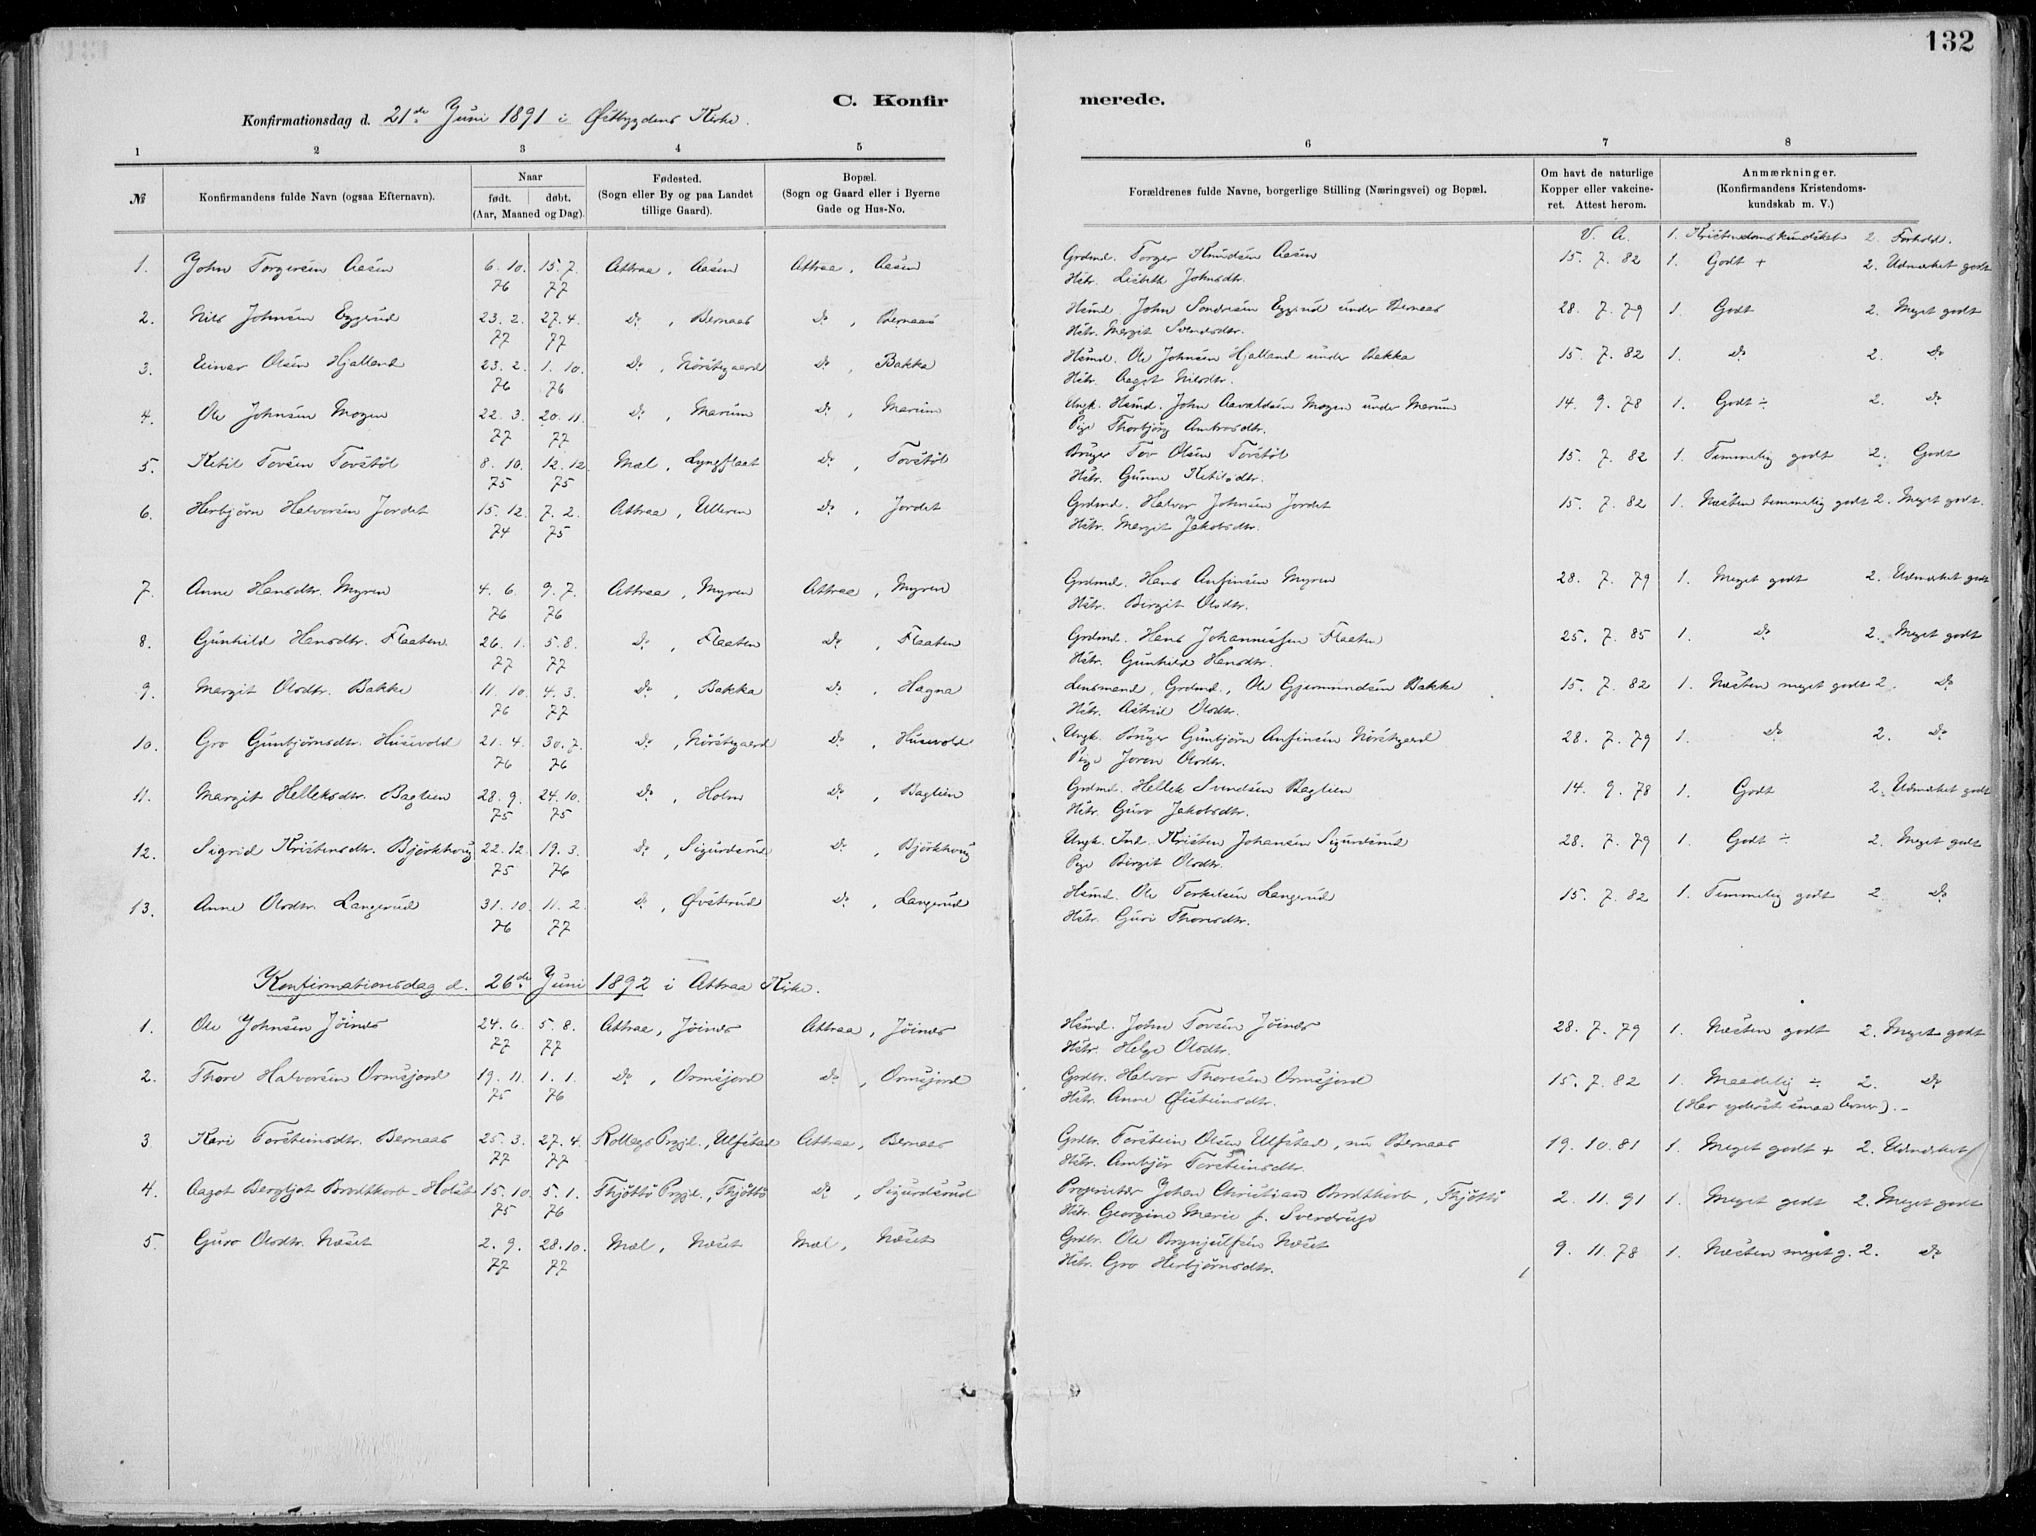 132
C. Konfirmerede.
Konfirmationsdag d. 21de Juni 1891 i Østbygdens Kirke.
1 2 3 4 5 6 7 8
№ Konfirmandens fulde Navn (ogsaa Efternavn). Naar født. døbt. (Aar, Maaned og Dag). Fødested. (Sogn eller By og paa Landet tillige Gaard). Bopæl. (Sogn og Gaard eller i Byerne Gade og Hus-No. Forældrenes fulde Navne, borgerlige Stilling (Næringsvei) og Bopæl. Om havt de naturlige Kopper eller vakcineret. Attest herom. Anmærkninger. (Konfirmandens Kristendomskundskab m. V.)
V. A. 1. Kristendomskundskab 2. Forhold.
1. John Torgersen Aasen 6. 10. 76 15. 7. 77 Attraa, Aasen Attraa, Aasen Grdmd. Torger Knudsen Aasen 15. 7. 82 1. Godt + 2. Udmærket godt
Hstr. Lisbeth Johnsdtr.
2. Nils Johnsen Eggerud 23. 2. 77 27. 4. 77 Do, Bernaas Do, Bernaas Hsmd. John Sondresen Eggerud under Bernaas 28. 7. 79 1. Godt 2. Meget godt
Hstr. Margit Svendsdtr.
3. Einar Olsen Hjalland 23. 2. 76 1. 10. 76 Do, Nørstegaard Do, Bakka Hsmd. Ole Johnsen Hjalland under Bakka 15. 7. 82 1. Do 2. Do
Hstr. Aagot Nilsdtr.
4. Ole Johnsen Mogen 22. 3. 77 20. 11. 77 Do, Marum Do, Marum Ungk. Hsmd. John Aavaldsen Mogen under Marum 14. 9. 78 1. Godt ÷ 2. Do
Pige Thorbjørg Amtvesdtr.
5. Ketil Tovsen Tovstøl 8. 10. 75 12. 12. 75 Mæl, Lyngflaat Do, Tovstøl Bruger Tov Olsen Tovstøl 15. 7. 82 1. Temmelig godt 2. Godt
Hstr. Gunne Ketilsdtr.
6. Herbjørn Halvorsen Jordet 15. 12. 74 7. 2. 75 Attraa, Ulleren Do, Jordet Grdmd. Halvor Johnsen Jordet 15. 7. 82 1. Næsten temmelig godt 2. Meget godt.
Hstr. Margit Jakobsdtr.
7. Anne Hansdtr. Myren 4. 6. 76 9. 7. 76 Attraa, Myren Attraa, Myren Grdmd. Hans Anfinsen Myren 28. 7. 79 1. Meget godt 2. Udmærket godt
Hstr. Birgit Olsdtr.
8. Gunhild Hansdtr. Flaaten 26. 1. 77 5. 8. 77 Do, Flaaten Do, Flaaten Grdmd. Hans Johannessen Flaaten 25. 7. 85 1. Do 2. Meget godt
Hstr. Gunhild Hansdtr.
9. Margit Olsdtr. Bakke 11. 10. 76 4. 3. 77 Do, Bakka Do, Hagna Lensmand, Grdmd., Ole Gjermundsen Bakke 15. 7. 82 1. Næsten meget godt 2. Do
Hstr. Astrid Olsdtr.
10. Gro Gunbjørnsdtr. Husevold 21. 4. 76 30. 7. 76 Do, Nørstegaard Do, Husevold Ungk. Bruger Gunbjørn Anfinsen Nørstegaard 28. 7. 79 1. Do 2. Do
Pige Joren Olsdtr.
11. Margit Helleksdtr. Baglien 28. 9. 75 24. 10. 75 Do, Holm Do, Baglien Grdmd. Hellek Svendsen Baglien 14. 9. 78 1. Godt 2. Udmærket godt
Hstr. Guro Jakobsdtr.
12. Sigrid Kristensdtr. Bjørkhaug 22. 12. 75 19. 3. 76 Do, Sigurdsrud Do, Bjørkhaug Ungk. Ind. Kristen Johansen Sigurdsrud 28. 7. 79 1. Godt ÷ 2. Meget godt
Pige Birgit Olsdtr.
13. Anne Olsdtr. Langerud 31. 10. 76 11. 2. 77 Do, Øvsterud Do, Langerud Hsmd. Ole Torkelsen Langerud 15. 7. 82 1. Temmelig godt 2. Do
Hstr. Guri Thoresdtr.
Konfirmationsdag d. 26de Juni 1892 i Attraa Kirke.
1. Ole Johnsen Jøines 24. 6. 77 5. 8. 77 Attraa, Jøines Attraa, Jøines Hsmd. John Tovsen Jøines 28. 7. 79 1. Næsten godt 2. Meget godt
Hstr. Helge Olsdtr.
2. Thore Halvorsen Ormsjord 19. 11. 75 1. 1. 76 Do, Ormsjord Do, Ormsjord Grdbr. Halvor Thoresen Ormsjord 15. 7. 82 1. Maadelig ÷ 2. Do
Hstr. Anne Øisteinsdtr. (Har yderst smaa Evner).
3 Kari Torsteinsdtr. Bernaas 25. 3. 77 27. 4. 77 Rollags Prgjd., Ulfstad Attraa, Bernaas Grdbr. Torstein Olsen Ulfstad, nu Bernaas 19. 10. 81 1. Meget godt + 2. Udmærket
Hstr. Ambjør Torsteinsdtr.
4. Aagot Bergljot Brodtkorb-Holst 15. 10. 75 5. 1. 76 Thjøttø Prgjd., Thjøttø Do, Sigurdsrud Proprietær Johan Christian Brodtkorb, Thjøttø 2. 11. 91 1. Meget godt 2. Meget godt
Hstr. Georgine Marie f. Sverdrup
5. Guro Olsdtr. Næset 2. 9. 77 28. 10. 77 Mæl, Næset Mæl, Næset Grdbr. Ole Brynjulfsen Næset 9. 11. 78 1. Næsten meget g. 2. Do
Hstr. Gro Herbjørnsdtr.